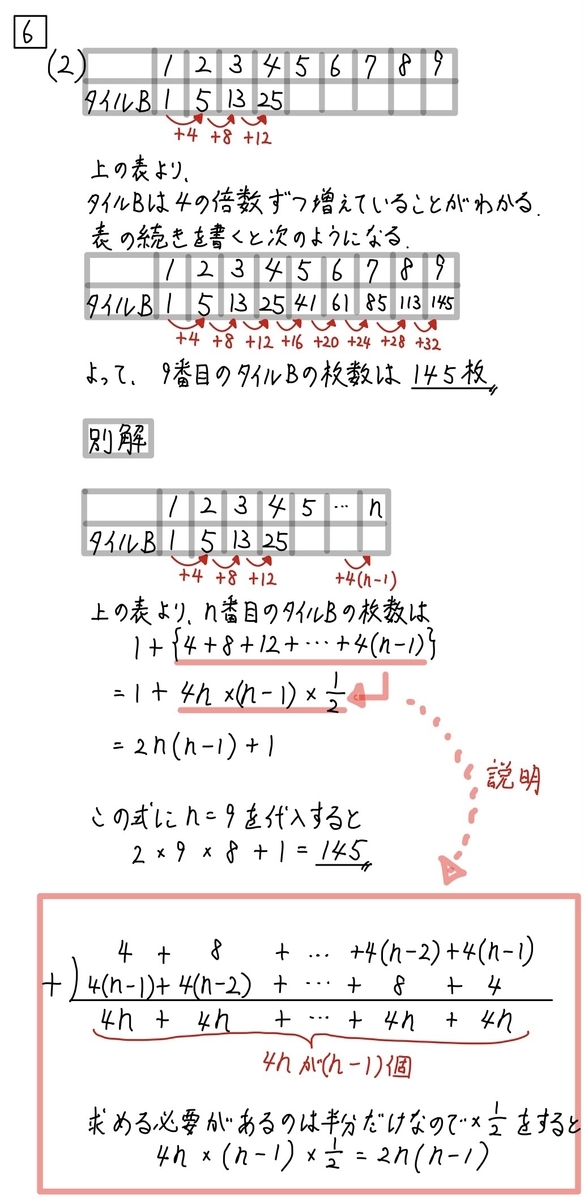 6
(2)
1 2 3 4 5 6 7 8 9
タイルB 1 5 13 25
+4 +8 +12
上の表より、
タイルBは4の倍数ずつ増えていることがわかる.
表の続きを書くと次のようになる.
1 2 3 4 5 6 7 8 9
タイルB 1 5 13 25 41 61 85 113 145
+4 +8 +12 +16 +20 +24 +28 +32
よって、9番目のタイルBの枚数は 145枚
別解
1 2 3 4 5 … n
タイルB 1 5 13 25
+4 +8 +12 +4(n-1)
上の表より、n番目のタイルBの枚数は
1+{4+8+12+…+4(n-1)}
=1+4n×(n-1)×1/2
=2n(n-1)+1
説明
この式にn=9を代入すると
2×9×8+1=145
4 + 8 + … +4(n-2)+4(n-1)
+)4(n-1)+4(n-2) + … + 8 + 4
4n + 4n + … + 4n + 4n
4nが(n-1)個
求める必要があるのは半分だけなので×1/2をすると
4n×(n-1)×1/2=2n(n-1)